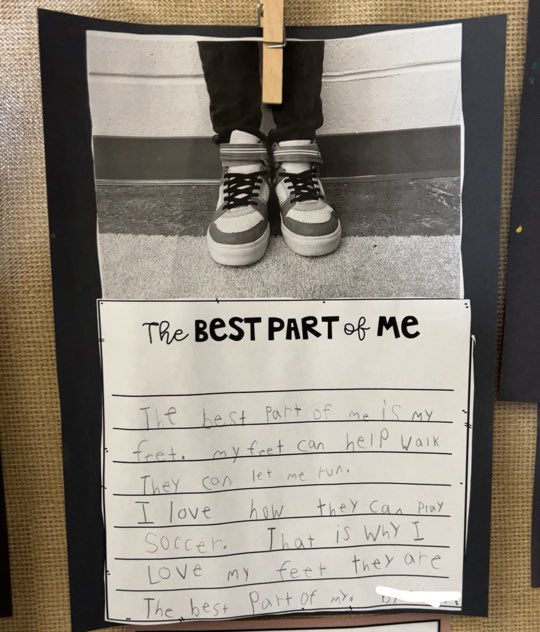 The BEST PART of ME
The best part of me is my
feet. my feet can help walk
They can let me run.
I love how they can play
soccer. That is why I
love my feet they are
The best part of my.